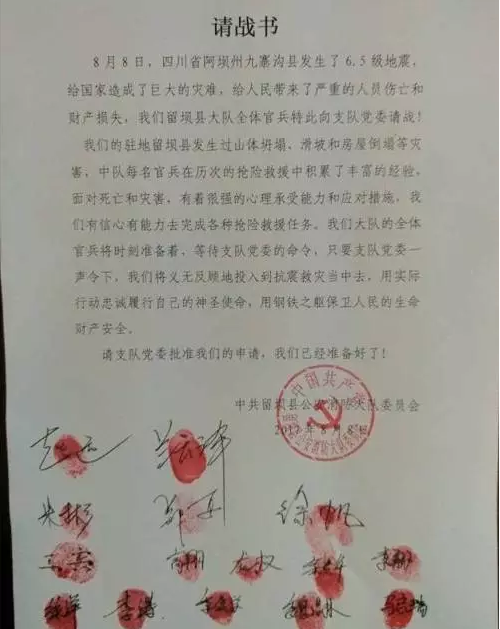 请战书
8月8日，四川省阿坝州九寨沟县发生了6.5级地震，
给国家造成了巨大的灾难，给人民带来了严重的人员伤亡和
财产损失，我们留坝县大队全体官兵特此向支队党委请战！
我们的驻地留坝县发生过山体坍塌、滑坡和房屋倒塌等灾
害，中队每名官兵在历次的抢险救援中积累了丰富的经验，
面对死亡和灾害，有着很强的心理承受能力和应对措施，我
们有信心有能力去完成各种抢险救援任务。我们大队的全体
官兵将时刻准备着，等待支队党委的命令，只要支队党委一
声令下，我们将义无反顾地投入到抗震救灾当中去，用实际
行动忠诚履行自己的神圣使命，用钢铁之躯保卫人民的生命
财产安全。
请支队党委批准我们的申请，我们已经准备好了！
中共留坝县公安消防大队委员会
2017年8月8日
中国共产党
朱彬 徐帆
李涛